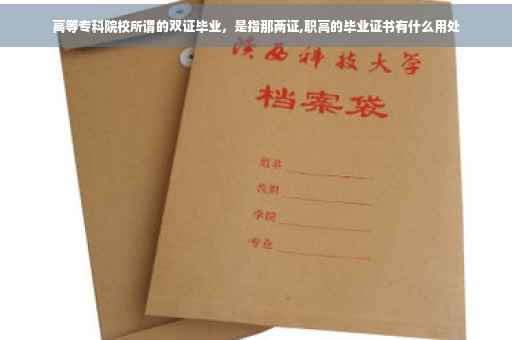 高等专科院校所谓的双证毕业，是指那两证,职高的毕业证书有什么用处
陕西科技大学
档案袋
姓名
学院
专业